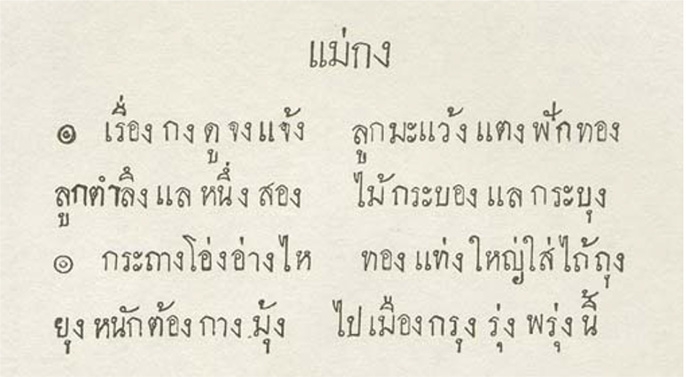 แม่กง
๏ เรื่อง กง ดู จงแจ้ง ลูกมะแว้ง แตง ฟักทอง
ลูกตำลึง แล หนึ่ง สอง ไม้กระบอง แล กระบุง
๏ กระถางโอ่งอ่างไห ทอง แท่ง ใหญ่ใส่ไถ้ถุง
ยุง หนักต้อง กาง มุ้ง ไปเมืองกรุง รุ่ง พรุ่ง นี้